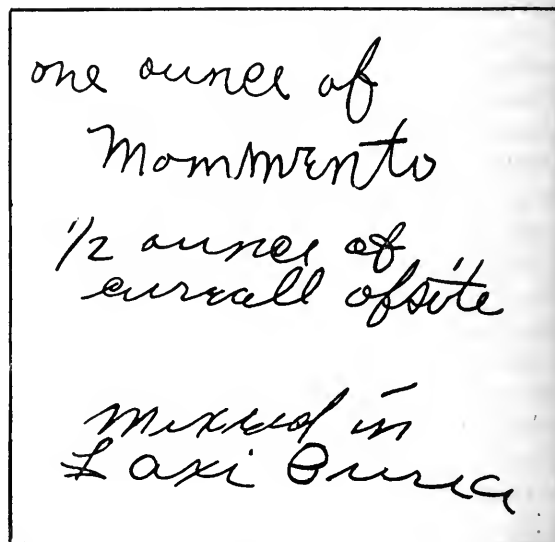 one ounce of
Mommento
1/2 ounce of
cureall ofsite
mixed in
Laxi Cuna